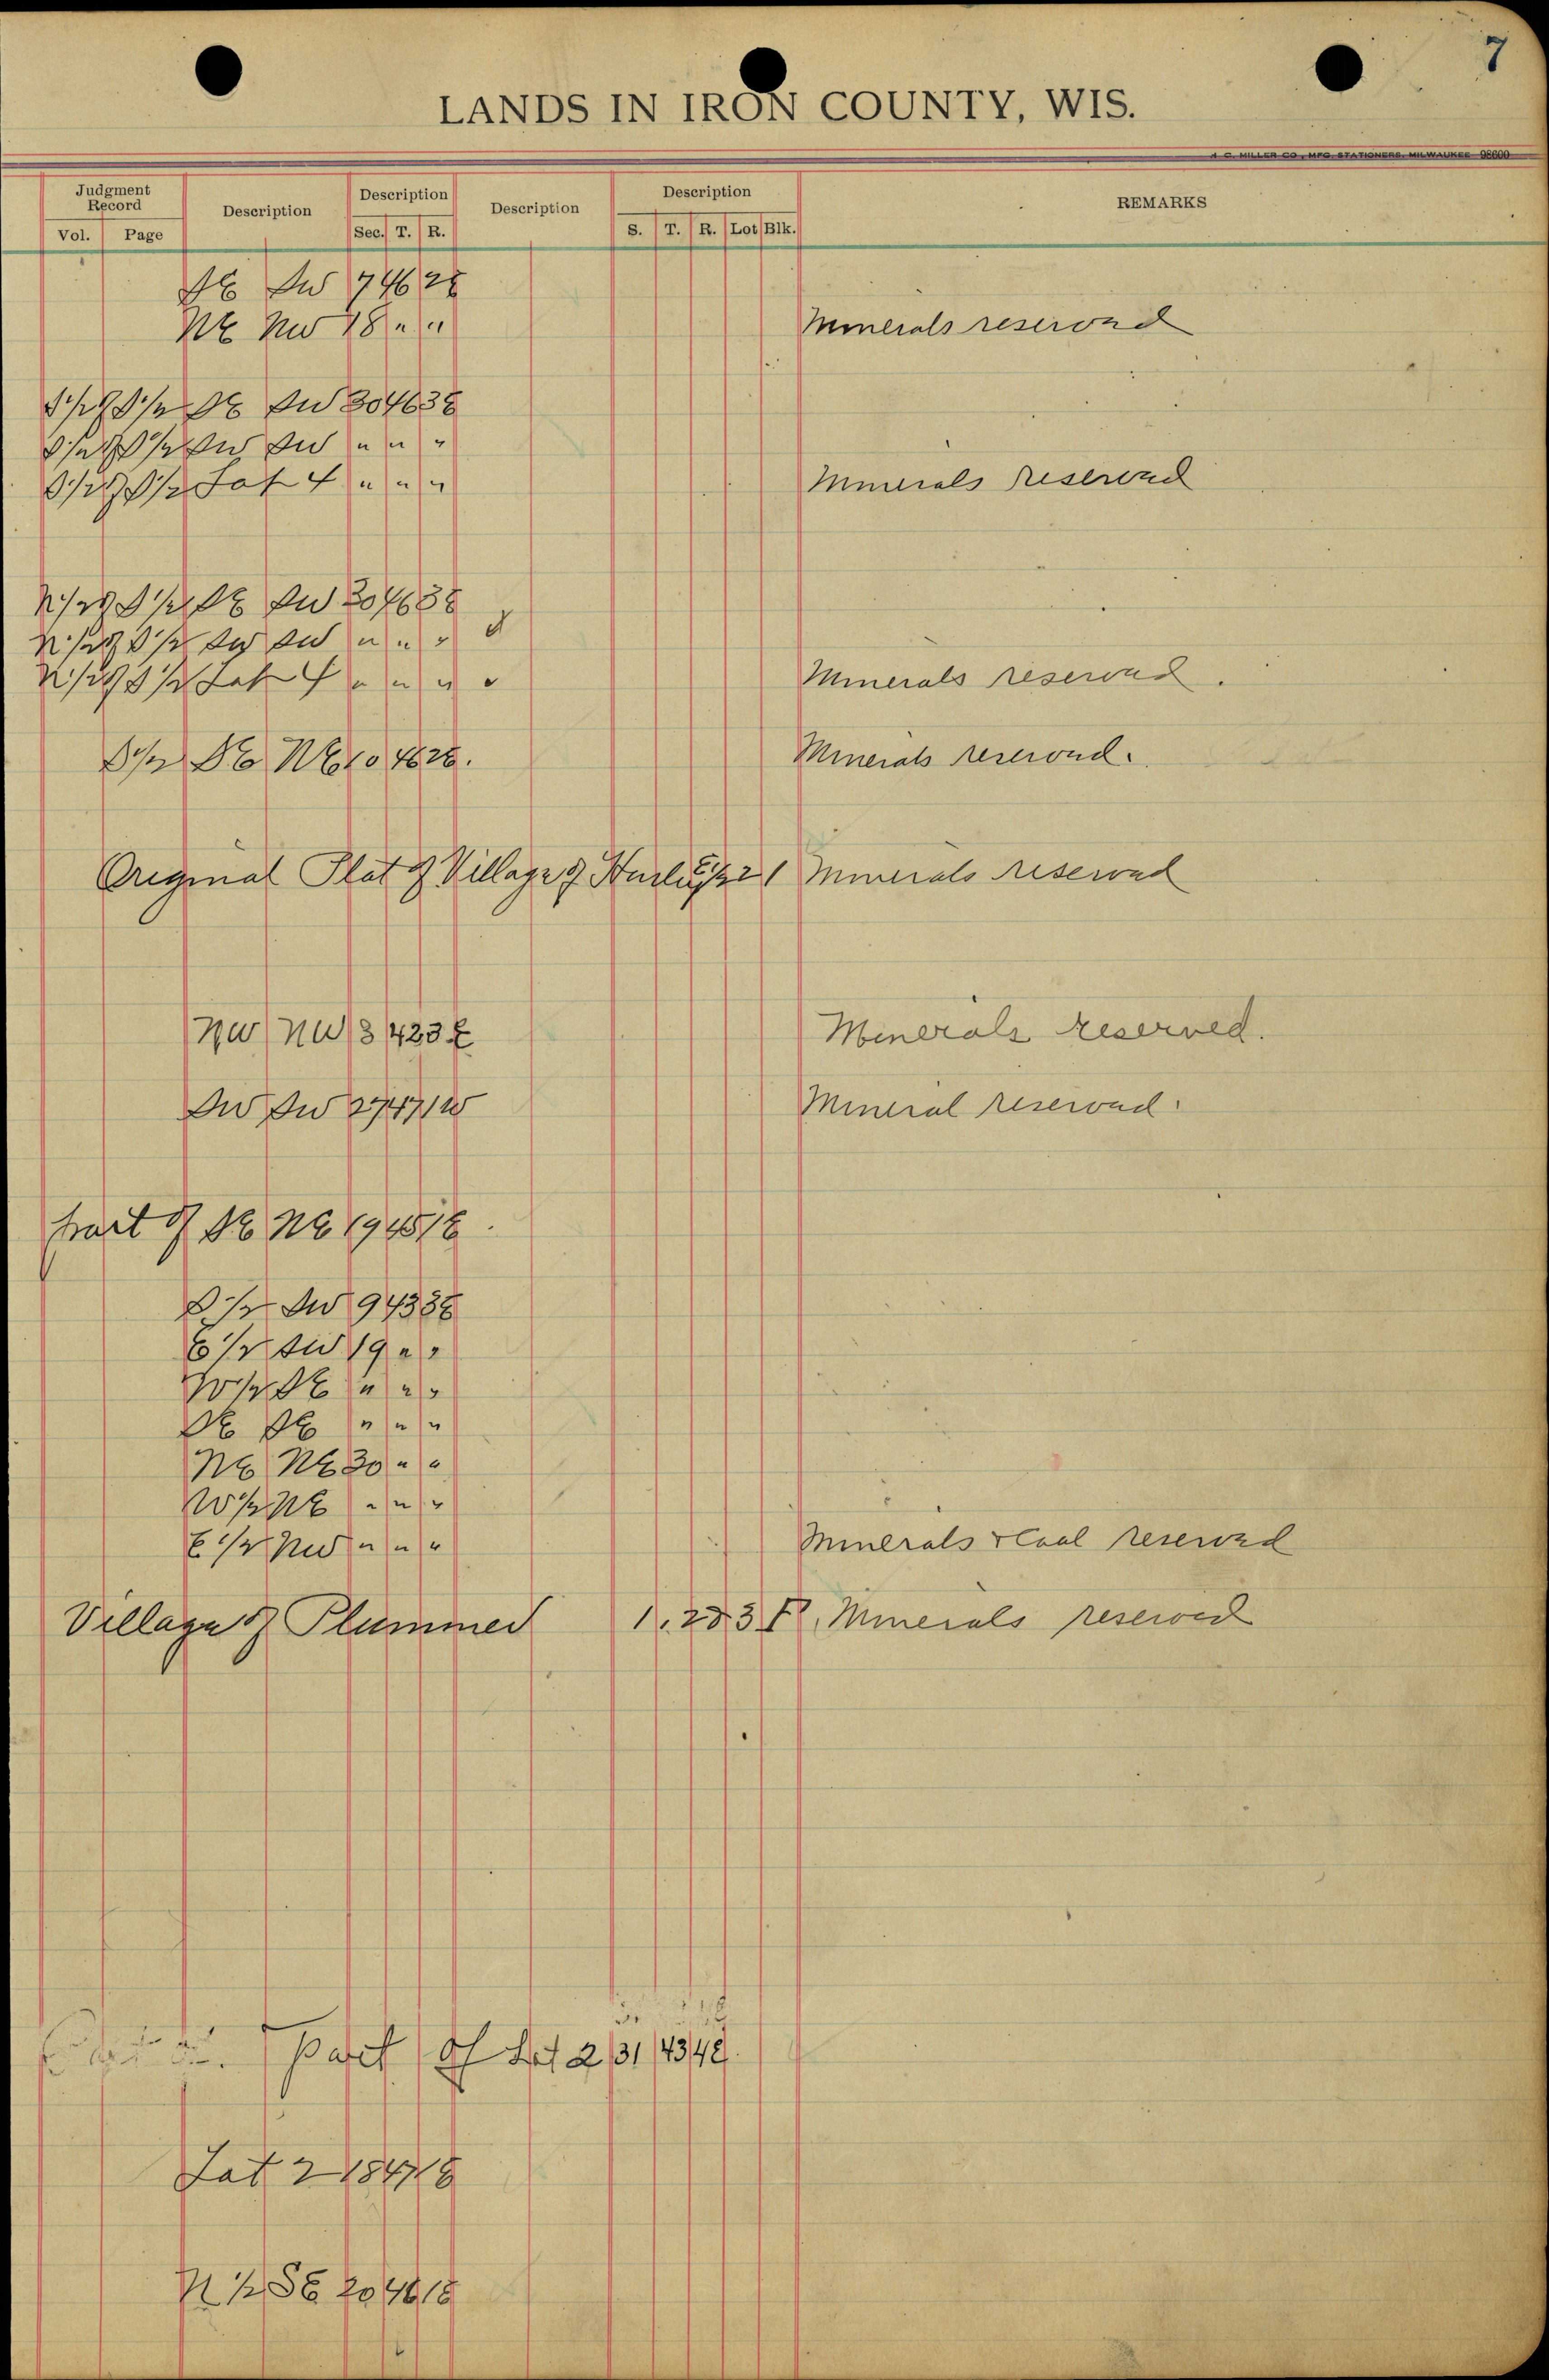 7
LANDS IN IRON COUNTY, WIS.
A C. MILLER CO., MFG. STATIONERS, MILWAUKEE 98600
Judgment Record Description Description Description Description REMARKS
Vol. Page Sec. T. R. S. T. R. Lot Blk.
SE SW 7 46 2E
NE NW 18 " " Minerals reserved
S 1/2 of S 1/2 SE SW 30 46 3E
S 1/2 of S 1/2 SW SW " " "
S 1/2 of S 1/2 Lot 4 " " " Minerals reserved
N 1/2 of S 1/2 SE SW 30 46 3E
N 1/2 of S 1/2 SW SW " " "
N 1/2 of S 1/2 Lot 4 " " " Minerals reserved.
S 1/2 SE NE 10 46 2E. Minerals reserved.
Original Plat of Village of Hurley 2 1 Minerals reserved
NW NW 3 42 3E Minerals reserved.
SW SW 27 47 1W Mineral reserved.
Part of SE NE 19 45 1E.
S 1/2 SW 9 43 3E
E 1/2 SW 19 " "
W 1/2 SE " " "
SE SE " " "
NE NE 30 " "
W 1/2 NE " " "
E 1/2 NW " " " Minerals & Coal reserved
Village of Plummer Minerals reserved
Part of Lot 2 31 43 4E.
Lot 2 18 47 1E
N 1/2 SE 20 46 1E